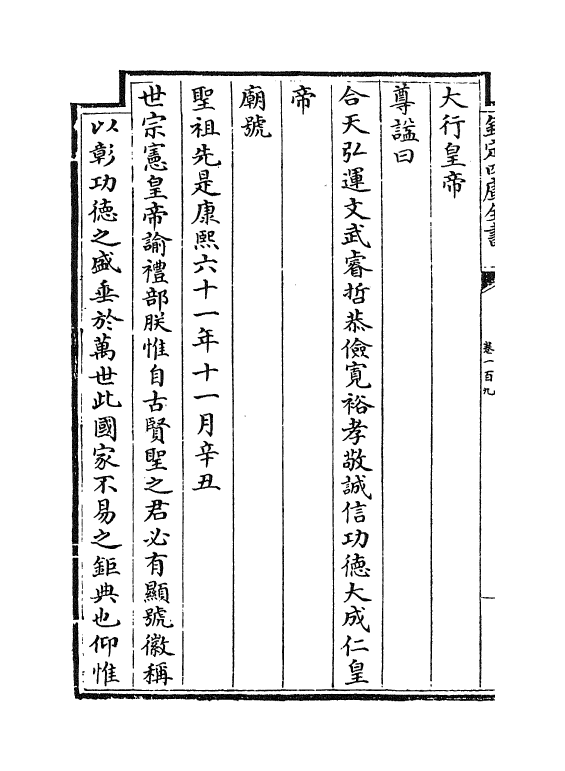 欽定四庫全書
卷一百九
大行皇帝
尊諡曰
合天弘運文武睿哲恭儉寛裕孝敬誠信功德大成仁皇
帝
廟號
聖祖先是康熙六十一年十一月辛丑
世宗憲皇帝諭禮部朕惟自古賢聖之君必有顯號徽稱
以彰功德之盛垂於萬世此國家不易之鉅典也仰惟